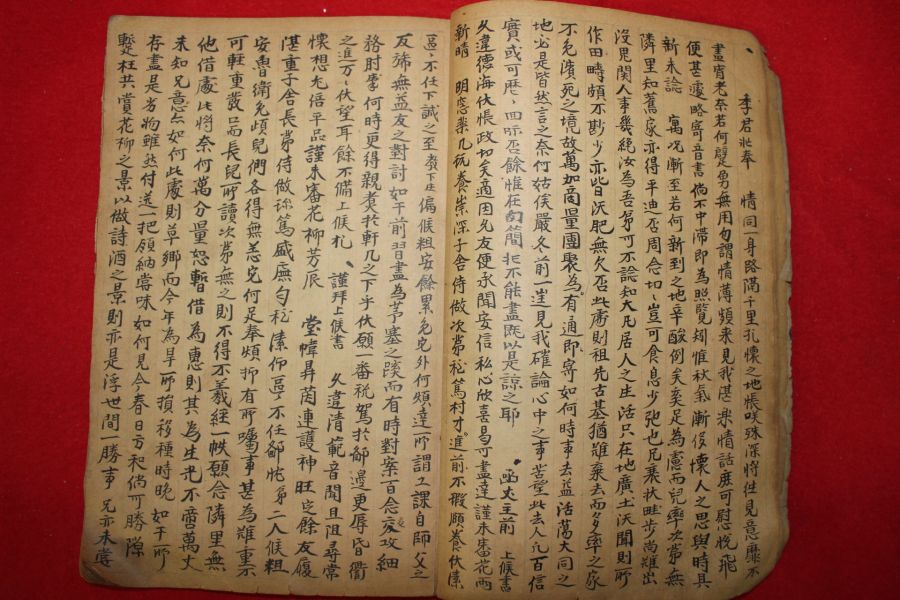 季君壯奉　情同一身路隔千里孔懷之地悵咲殊深將徃見意靡不
晝宵老奈若何髮勇無用勾謂情薄頻來見我湛樂情話庶可慰悅飛
便甚遽略寄音書倘不中滯即為照覽矧惟秋氣漸侵懷人之思與時具
新未諗　寓况漸至若何新到之地辛酸倒矣奚足為慮而兒率次常無
隣里知舊家亦得平迪否周念切々豈可食息少弛也兄衰狀畦步尚難出
沒甩関人事幾絶汝為吾弟可不諭知大凡居人之生活只在地廣土沃聞則所
作田疇頗不尠少亦皆沃肥無欠否此處則租先古基猶難棄去而多率之家
不免濱死之境故萬加商量團聚為有通即寄如何時事去益活蕩大同之
地必是皆然言之奈何姑俟嚴冬前一造見我確論心中之事苦企此去人亢百信
實或可歴々回示否餘惟在勾簡非不能盡既以是諒之耶　函丈主前　上候書
久違德海伏悵政切矣適因兄友便承聞安信私心欣喜曷可盡達謹未審花雨
新晴　明窓棐几玩養崇深子舍侍做次第穩篤村才進前不瑕願養伏溸
區々不任下誠之至教下庄偏候粗安餘累免宅外何煩達所謂工課自師父之
反旆無益友之對討如干前習盡為茅塞之蹊而有時對案百念交攻細
駱肘掌何時更得親炙於軒几之下乎伏願一番税駕於鄙邊更辱昏衢
之進万々伏望耳餘不備上候札　謹拜上候書　久違清範音聞且阻尋常
懷想尤倍平品謹未審花柳芳辰　堂幃昇茵連護神旺定餘友履
湛重子舍長第侍做珍篤盛廡勻穩溸仰區々不任鄙忱弟二人候粗
安魯衛免頉兒們各得無恙宅何足奉煩抑有所囑事甚為難重示
可輕重裁己而長兒所讀次第無之則不得不羲經一帙願念隣里無
他借處比將奈何萬分量恕暫借為惠則其為生光不啻萬丈
未知兄意亦如何此處則草鄉而今年為旱所損移種時晚如干所
存盡是劣物雖然付送一把領納嘗味如何見今春日方和倘可勝隙
蹔枉共賞花柳之景以做詩酒之景則亦是浮世間一勝事　兄亦未嘗